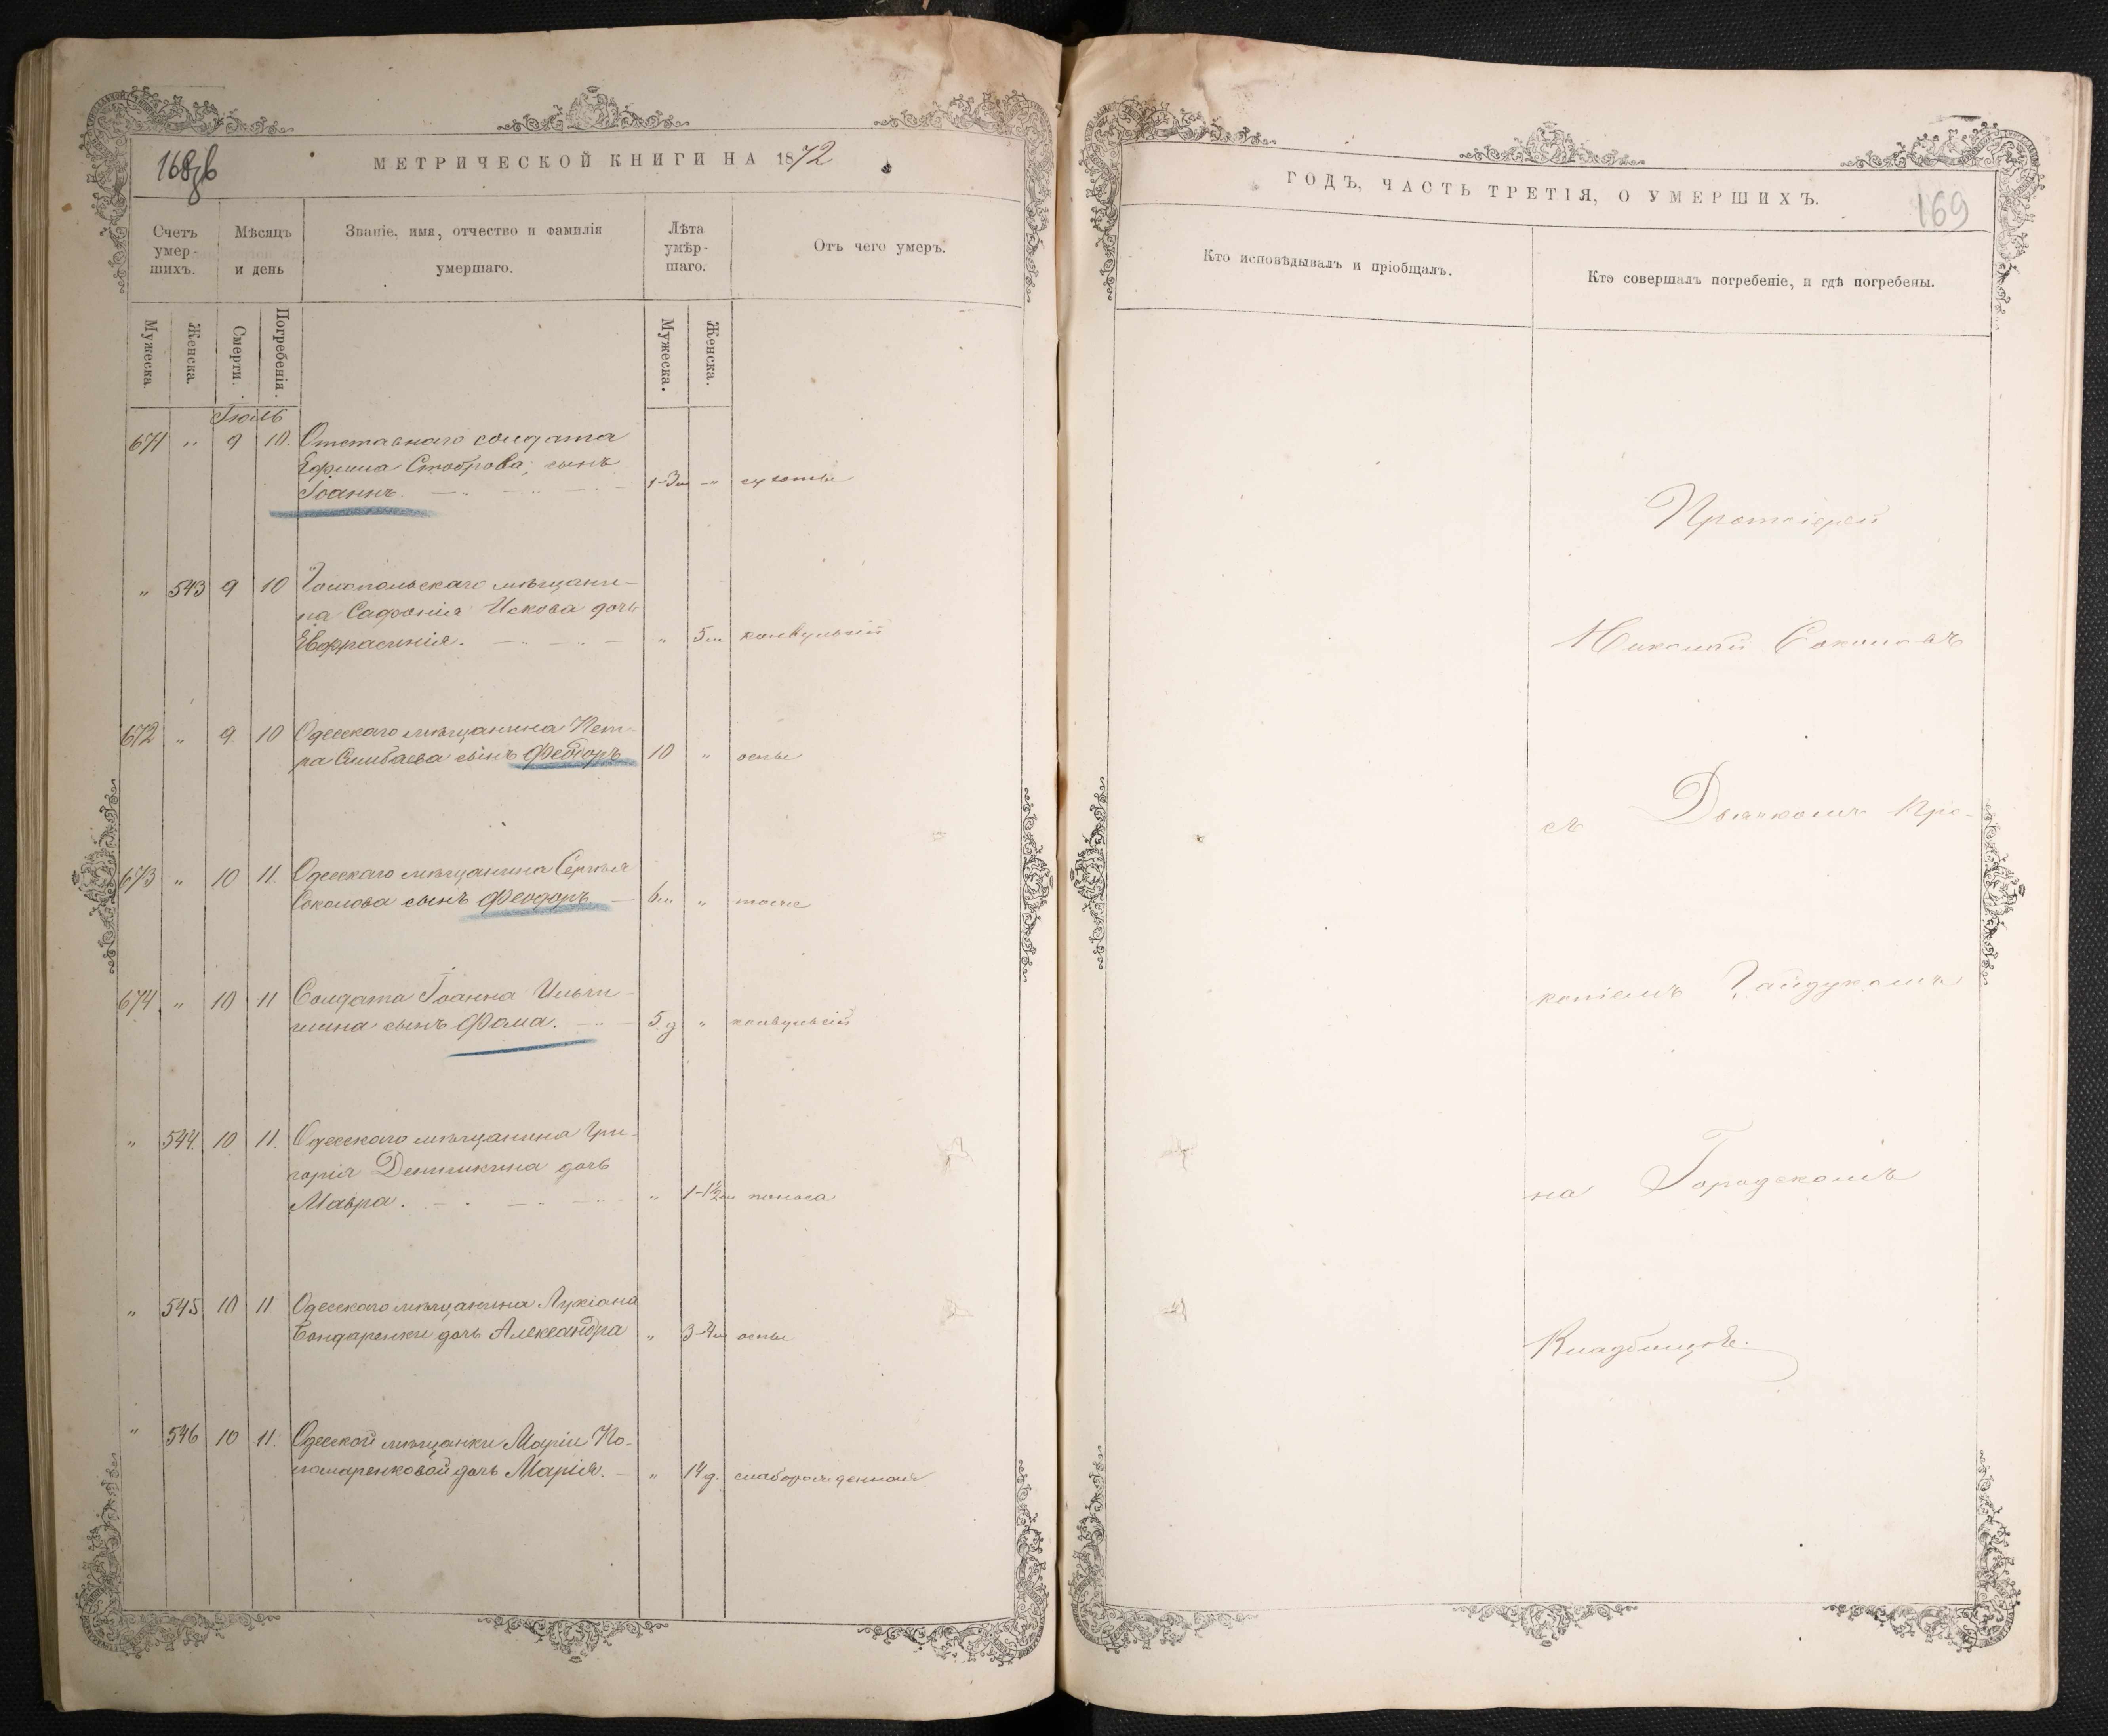 168об
МЕТРИЧЕСКОЙ КНИГИ НА 1872
Счетъ умер-шихъ.
Мѣсяцъ и день
Званіе, имя, отчество и фамилія умершаго.
Лѣта умѣр-шаго.
Отъ чего умеръ.
Мужеска.
Женска.
Смерти.
Погребенія.
Мужеска.
Женска.
Іюль
671 " 9 10. Отставнаго солдата
Ефима сынъ
Іоаннъ. 1-3м "
" 543 9 10 мѣщани-
на Сафонія Искова дочь
Евфрасинія. " 5м конвульсій
672 " 9 10 Одесскаго мѣщанина Пет-
ра сынъ Феодоръ 10 " оспы
673 " 10 11. Одесскаго мѣщанина Сергѣя
Соколова сынъ Феодоръ 6м " тоже
674 " 10 11 Солдата Іоанна Ильи-
шина сынъ Фома. 5д " конвульсій
" 544. 10. 11. Одесскаго мѣщанина Гри-
горія Денишкина дочь
Мавра. " 1-1½м поноса
" 545 10 11 Одесскаго мѣщанина Лукіана
Бондаренки дочь Александра " 3-4м оспы
" 546 10 11. Одесской мѣщанки Маріи По-
номаренковой дочь Марія. " 14д. слаборожденная
ГОДЪ, ЧАСТЬ ТРЕТІЯ, О УМЕРШИХЪ.
169
Кто исповѣдывалъ и пріобщалъ.
Кто совершалъ погребеніе, и гдѣ погребены.
Протоіерей
Николай Соколовъ
съ Дьячкомъ Про-
копіемъ Гайдукомъ
на Городскомъ
Кладбищѣ.